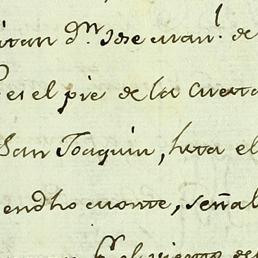 itan Dn. Jose Man.l de
es el pie de la cuesta
San Joaquin, hta el
endho monte, señal
el viento es